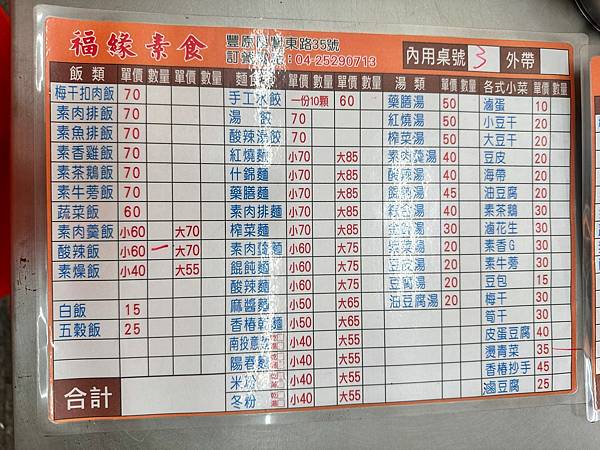 福緣素食
豐原區 東路35號
訂 :04-25290713
內用桌號 3 外帶
飯類 單價 數量 單價 數量
梅干扣肉飯 70
素肉排飯 70
素魚排飯 70
素香雞飯 70
素茶鵝飯 70
素牛蒡飯 70
蔬菜飯 60
素肉羹飯 小60 大70
酸辣飯 小60 一 大70
素燥飯 小40 大55
白飯 15
五穀飯 25
合計
麵食 單價 數量 單價 數量
手工水餃 一份10顆 60
湯餃 70
酸辣湯餃 70
紅燒麵 小70 大85
什錦麵 小70 大85
藥膳麵 小70 大85
素肉排麵 小70 大85
榨菜麵 小70 大85
素肉羹麵 小60 大75
餛飩麵 小60 大75
酸辣麵 小60 大75
麻醬麵 小50 大65
香椿乾麵 小50 大65
南投意 小40 大55
陽春麵 小40 大55
米 小40 大55
冬粉 小40 大55
湯類 單價 數量
藥膳湯 50
紅燒湯 50
榨菜湯 50
素肉羹湯 40
酸辣湯 40
餛飩湯 45
湯 40
湯 40
湯 20
豆皮湯 20
豆腐湯 20
油豆腐湯 20
各式小菜 單價 數量
滷蛋 10
小豆干 20
大豆干 20
豆皮 20
海帶 20
油豆腐 20
素茶鵝 30
滷花生 30
素香G 30
素牛蒡 30
豆包 15
梅干 30
筍干 30
皮蛋豆腐 40
燙青菜 35
香椿抄手 45
滷豆腐 25